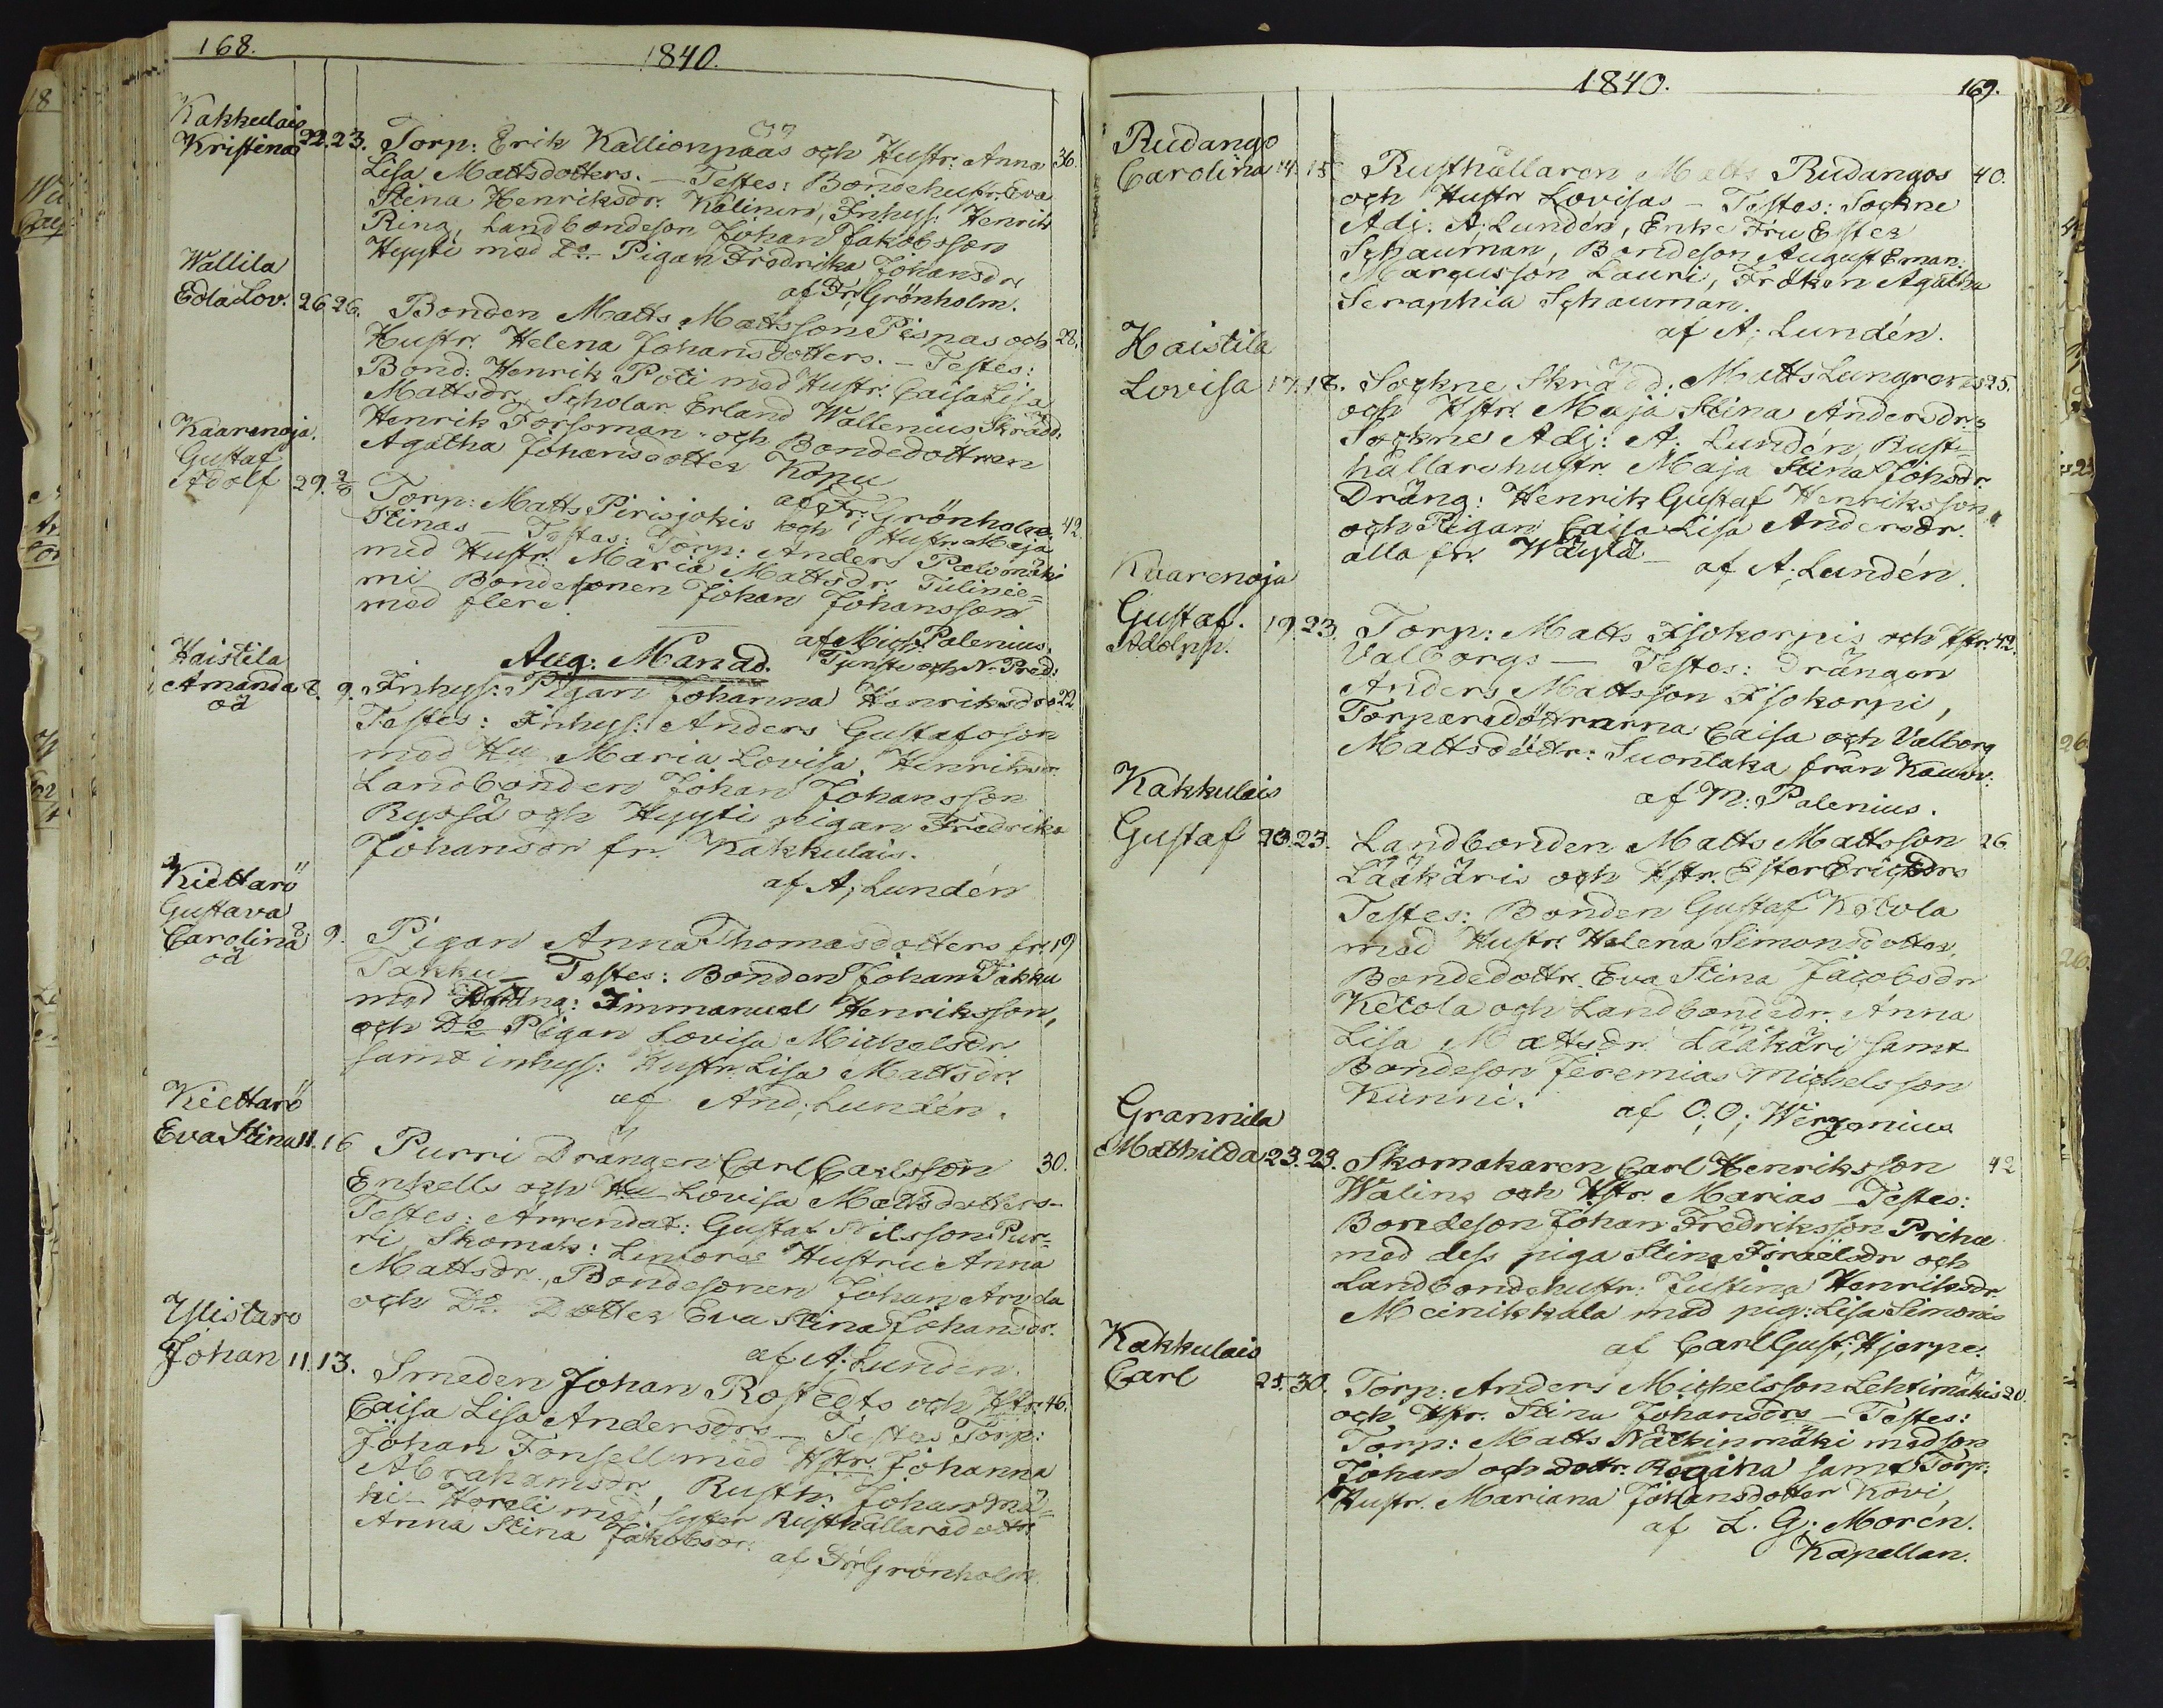 168.
1840.
Kakkulais
Kristina 22. 23. Torp: Erik Kallionpääs och Hustr: Anna 36.
Lisa Mattsdotters. — Testes: Bondehustr. Eva
Stina Henriksdr. Kälinen, Inhys: Henrik
Ring, Landbondeson Johan Jakobsson
Hyyti med Do Pigan Fredrika Johansdr
af Fr: Grönholm.
Wallila
Eda Lov. 26 26. Bonden Matts Mattsson Pispas och 28.
Hustr. Helena Johansdotters. — Testes:
Bond: Henrik Poti med Hustr: Caisa Lisa
Mattsdr, Scholar Erland Wallenius Skrädd:
Henrik Forsman och Bondedottren
Agatha Johansdotter Kopu
af Fr: Grönholm.
Kaarenoja.
Gustaf
Adolf 29. 2/8 Torp: Matts Pirisjokis och Hustr. Maja 42.
Stinas — Testes: Torp: Anders Palomäki
med Hustr. Maria Mattsdr. Tulinie=
mi Bondesonen Johan Johansson
med flere.
af Mich: Palenius.
Tjenste och N. Pred:
Aug: Månad.
Haistila
Amanda 8. 9. Inhys: Pigan Johanna Henriksdrs 22
oä
Testes: Inhys: Anders Gustafsson
med Hu Maria Lovisa Henriksdr.
Landbonden Johan Johansson
Ryssä och Hyyti pigan Fredrika
Johansdr fr. Kakkulais.
af A; Lundén
Kiettarö
Gustava
Carolina 8. 9. Pigan Anna Thomasdotters fr. 19
oä
Takku — Testes: Bonden Johan Takku
med Dräng: Immanuel Henriksson,
och Do Pigan Lovisa Mickelsdr
samt inhys: Hustr. Lisa Mattsdr.
af And; Lundén.
Kiettarö
Eva Stina 11. 16 Purri Drängen Carl Carlsson 30.
Enkells och Hu Lovisa Mattsdotters —
Testes: Arrendat: Gustaf Nilsson Pur=
ri, Skomak: Hustru Anna
Mattsdr., Bondesonen Johan Arvela
och Do Dotter Eva Stina Johansdr.
af A; Lundén.
Ylistaro
Johan 11. 13. Smeden Johan Rostedts och Hstr. 46.
Caisa Lisa Andersdrs — Testes Torp:
Johan Fonsell med Hstr. Johanna
Abrahamsdr., Rusth: Johan Mä=
ki- Horeli med syster Rusthållaredottr.
Anna Stina Jakobsdr.
af Fr: Grönholm.
1840.
169.
Rudango
Carolina 14. 15 Rusthållaren Matts Rudangos 40.
och Hustr Lovisas — Testes: Sockne
Adj: A; Lundén, Enke Fru Ester
Schauman, Bondeson August Eman:
Marcusson Lauri, Fröken Agatha
Seraphia Schauman.
af A; Lundén.
Haistila
Lovisa 17. 18. Sockne Skrädd: Matts Lungrens 25.
och Hstr. Maja Stina Andersdrs
Sockne Adj: A; Lundén, Rust=
hållarehustr. Maja Stina Johsdr.
Dräng: Henrik Gustaf Henriksson,
och Pigan Caisa Lisa Andersdr.
alla fr. Wäylä —
af A; Lundén.
Kaarenoja
Gustaf. 19. 23. Torp: Matts Isokorpis och Hstr. 42.
Adolph.
Valborgs — Testes: Drängen
Anders Mattsson Isokorpi,
Torparedöttrarna Caisa och Valborg
Mattsdöttr: Suontaka från Kauv:
af M: Palenius.
Kakkulais
Gustaf 23. 23. Landbonden Matts Mattsson 26
Lääkäris och Hstr. Ester Ericsdrs
Testes: Bonden Gustaf Ketola
med Hustr. Helena Simonsdotter,
Bondedottr. Eva Stina Jacobsdr
Ketola och Landbondedr. Anna
Lisa Mattsdr. Lääkäri samt
Bondeson Jeremias Michelsson
Kunni.
af O; O; Wirzenius
Grannila
Mathilda 23. 23. Skomakaren Carl Henriksson 42
Walins och Hstr. Marias Testes:
Bondeson Johan Fredriksson Priha
med dess piga Stina Israelsdr och
Landbondehustr: Justina Henriksdr
Meinikkala med pig: Lisa Simonis
af Carl Gust; Hjerpe.
Kakkulais
Carl 25. 30. Torp: Anders Michelsson Lehtimäkis 20.
och Hstr. Stina Johansdrs — Testes:
Torp: Matts Nätkinmäki med son
Johan och dottr. Regina samt Torp:
Hustr. Mariana Johansdotter Kovi,
af L. G; Morén.
Kapellan.